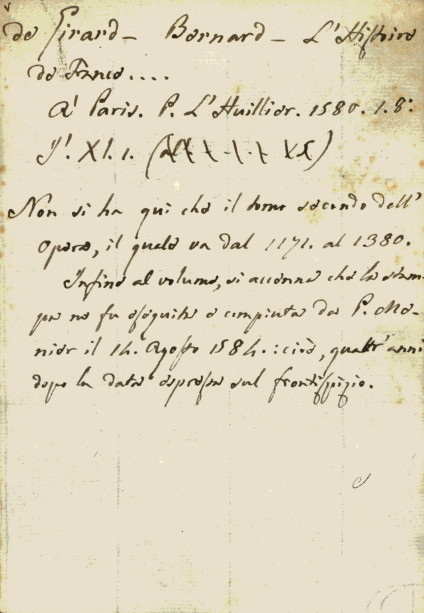 de Girard - Bernard - L'Histoire
de France....
A' Paris. P. L'Huillier. 1580. 1. 8:
J'. XI. 1.
Non si ha qui che il tomo secondo dell'
opera, il quale va dal 1171. al 1380.
Infine al volume, si accenna che la stam-
pa ne fu eseguita e compiuta da P. Mo-
nier il 14. Agosto 1584. : cioè, quattr'anni
dopo la data espressa sul frontispizio.